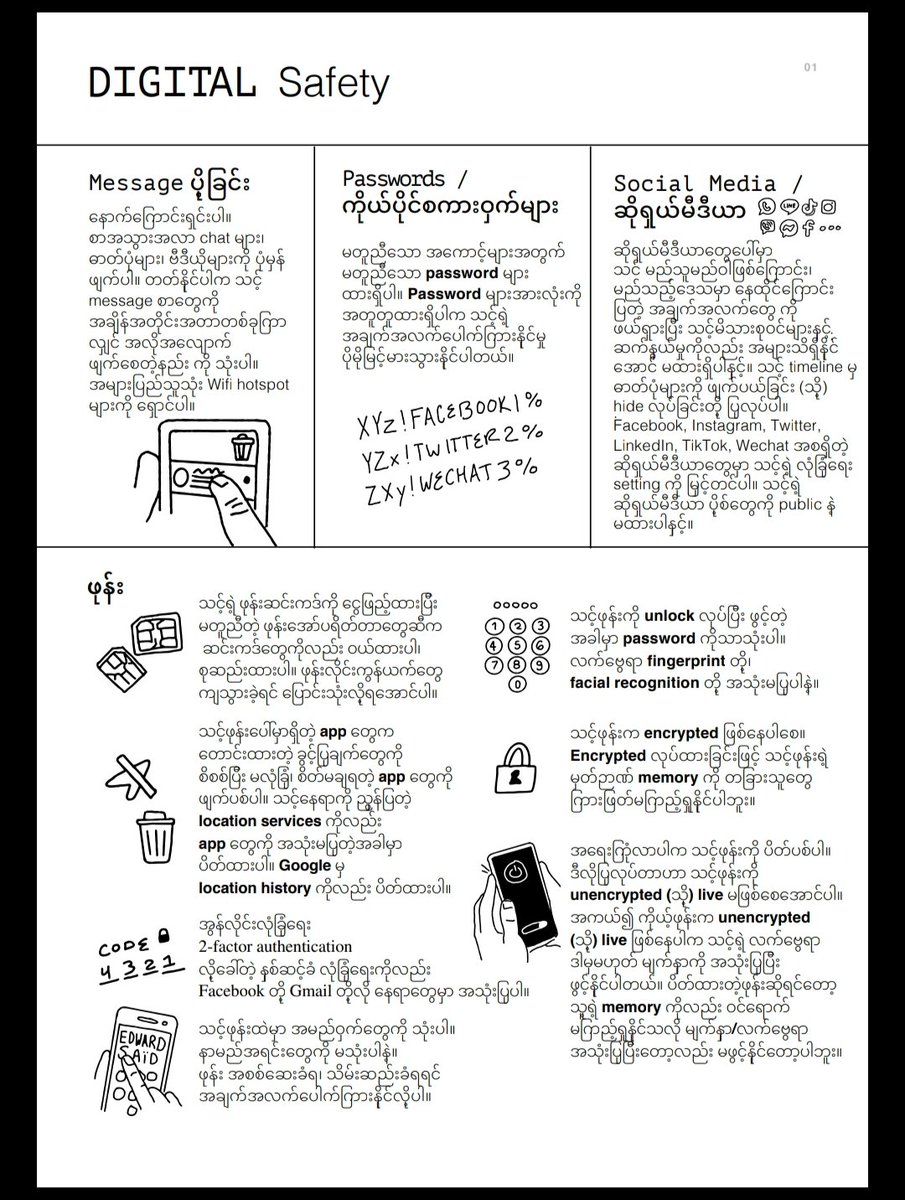 DIGITAL Safety
01
Message ပို့ခြင်း
နောက်ကြောင်းရှင်းပါ။
စာအသွားအလာ chat များ၊
ဓာတ်ပုံများ၊ ဗီဒီယိုများကို ပုံမှန်
ဖျက်ပါ။ တတ်နိုင်ပါက သင့်
message စာတွေကို
အချိန်အတိုင်းအတာတစ်ခုကြာ
လျှင် အလိုအလျောက်
ဖျက်စေတဲ့နည်း ကို သုံးပါ။
အများပြည်သူသုံး Wifi hotspot
များကို ရှောင်ပါ။
Passwords /
ကိုယ်ပိုင်စကားဝှက်များ
မတူညီသော အကောင့်များအတွက်
မတူညီသော password များ
ထားရှိပါ။ Password များအားလုံးကို
အတူတူထားရှိပါက သင့်ရဲ့
အချက်အလက်ပေါက်ကြားနိုင်မှု
ပိုမိုမြင့်မားသွားနိုင်ပါတယ်။
XYz!FACEBOOK1%
YZx!TWITTER2%
ZXy!WECHAT3%
Social Media /
ဆိုရှယ်မီဒီယာ
LINE
ဆိုရှယ်မီဒီယာတွေပေါ်မှာ
သင် မည်သူမည်ဝါဖြစ်ကြောင်း၊
မည်သည့်ဒေသမှာ နေထိုင်ကြောင်း
ပြတဲ့ အချက်အလက်တွေ ကို
ဖယ်ရှားပြီး သင့်မိသားစုဝင်များနှင့်
ဆက်နွယ်မှုကိုလည်း အများသိရှိနိုင်
အောင် မထားရှိပါနှင့်။ သင့် timeline မှ
ဓာတ်ပုံများကို ဖျက်ပယ်ခြင်း (သို့)
hide လုပ်ခြင်းတို့ ပြုလုပ်ပါ။
Facebook, Instagram, Twitter,
LinkedIn, TikTok, Wechat အစရှိတဲ့
ဆိုရှယ်မီဒီယာတွေမှာ သင့်ရဲ့ လုံခြုံရေး
setting ကို မြှင့်တင်ပါ။ သင့်ရဲ့
ဆိုရှယ်မီဒီယာ ပို့စ်တွေကို public နဲ့
မထားပါနှင့်။
ဖုန်း
သင့်ရဲ့ ဖုန်းဆင်းကဒ်ကို ငွေဖြည့်ထားပြီး
မတူညီတဲ့ ဖုန်းအော်ပရိတ်တာတွေဆီက
ဆင်းကဒ်တွေကိုလည်း ဝယ်ထားပါ၊
စုဆည်းထားပါ။ ဖုန်းလိုင်းကွန်ယက်တွေ
ကျသွားခဲ့ရင် ပြောင်းသုံးလို့ရအောင်ပါ။
သင့်ဖုန်းပေါ်မှာရှိတဲ့ app တွေက
တောင်းထားတဲ့ ခွင့်ပြုချက်တွေကို
စိစစ်ပြီး မလုံခြုံ၊ စိတ်မချရတဲ့ app တွေကို
ဖျက်ပစ်ပါ။ သင့်နေရာကို ညွှန်ပြတဲ့
location services ကိုလည်း
app တွေကို အသုံးမပြုတဲ့အခါမှာ
ပိတ်ထားပါ။ Google မှ
location history ကိုလည်း ပိတ်ထားပါ။
CODE
4 3 2 1
အွန်လိုင်းလုံခြုံရေး
2-factor authentication
လို့ခေါ်တဲ့ နှစ်ဆင့်ခံ လုံခြုံရေးကိုလည်း
Facebook တို့ Gmail တို့လို နေရာတွေမှာ အသုံးပြုပါ။
EDWARD
SAÏD
သင့်ဖုန်းထဲမှာ အမည်ဝှက်တွေကို သုံးပါ။
နာမည်အရင်းတွေကို မသုံးပါနဲ့။
ဖုန်း အစစ်ဆေးခံရ၊ သိမ်းဆည်းခံရရင်
အချက်အလက်ပေါက်ကြားနိုင်လို့ပါ။
1 2 3
4 5 6
7 8 9
0
သင့်ဖုန်းကို unlock လုပ်ပြီး ဖွင့်တဲ့
အခါမှာ password ကိုသာသုံးပါ။
လက်ဗွေရာ fingerprint တို့၊
facial recognition တို့ အသုံးမပြုပါနဲ့။
သင့်ဖုန်းက encrypted ဖြစ်နေပါစေ။
Encrypted လုပ်ထားခြင်းဖြင့် သင့်ဖုန်းရဲ့
မှတ်ဉာဏ် memory ကို တခြားသူတွေ
ကြားဖြတ်မကြည့်ရှုနိုင်ပါဘူး။
အရေးကြုံလာပါက သင့်ဖုန်းကို ပိတ်ပစ်ပါ။
ဒီလိုပြုလုပ်တာဟာ သင့်ဖုန်းကို
unencrypted (သို့) live မဖြစ်စေအောင်ပါ။
အကယ်၍ ကိုယ့်ဖုန်းက unencrypted
(သို့) live ဖြစ်နေပါက သင့်ရဲ့ လက်ဗွေရာ
ဒါမှမဟုတ် မျက်နှာကို အသုံးပြုပြီး
ဖွင့်နိုင်ပါတယ်။ ပိတ်ထားတဲ့ဖုန်းဆိုရင်တော့
သူ့ရဲ့ memory ကိုလည်း ဝင်ရောက်
မကြည့်ရှုနိုင်သလို မျက်နှာ/လက်ဗွေရာ
အသုံးပြုပြီးတော့လည်း မဖွင့်နိုင်တော့ပါဘူး။